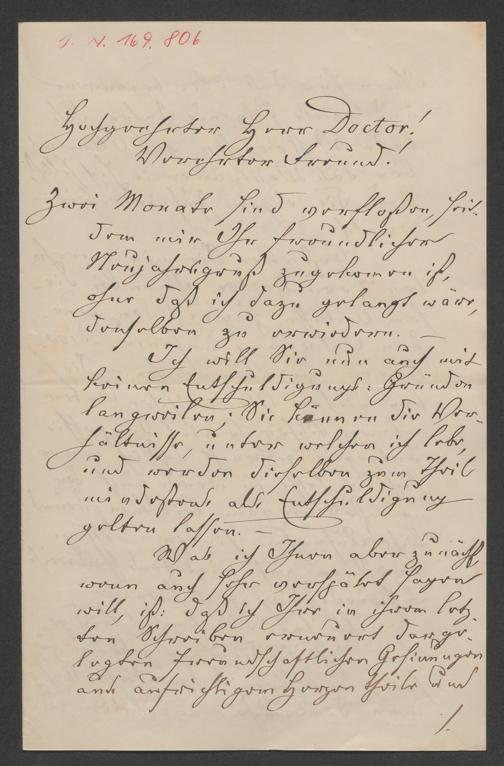 I. N. 169.806
Hochgeehrter Herr Doctor!
Verehrter Freund!
Zwei Monate sind verfloßen, seit-
dem mir Ihr freundlicher
Neujahrsgruß zugekomen ist,
ohne daß ich dazu gelangt wäre,
denselben zu erwiedern. —
Ich will Sie nun auch mit
keinen Entschuldigungs-Gründen
langweilen; Sie kennen die Ver-
hältnisse, unter welchen ich lebe,
und werden dieselben zum Theil
mindestens als Entschuldigung
gelten lassen. —
Was ich Ihnen aber zunächst
wenn auch sehr verspätet sagen
will, ist: daß ich Ihre in ihrem letz-
ten Schreiben erneuert darge-
legten freundschaftlichen Gesinnungen
aus aufrichtigem Herzen theile und
./.